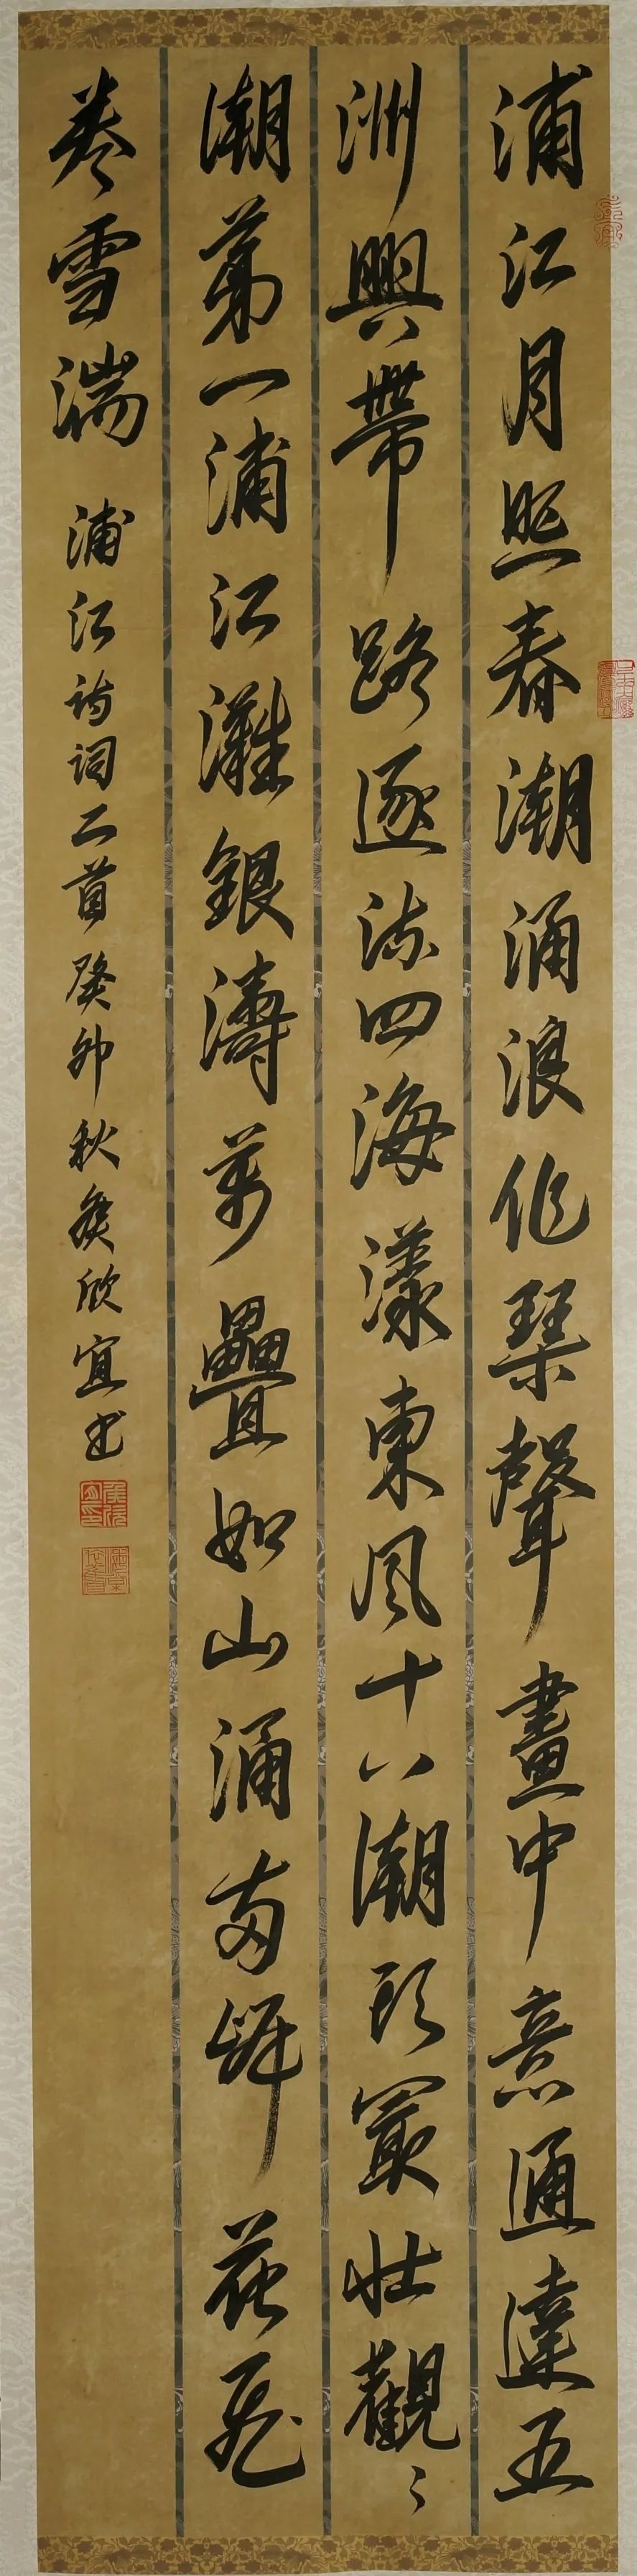 浦江月照春潮涌浪作琴聲畫中意通達五
洲興帶路逐流四海漾東風十八潮頭最壯觀〻
潮第一浦江灘銀濤萬疊如山涌兩岸花飛
卷雪湍 浦江詩詞二首癸卯秋侯欣宜书